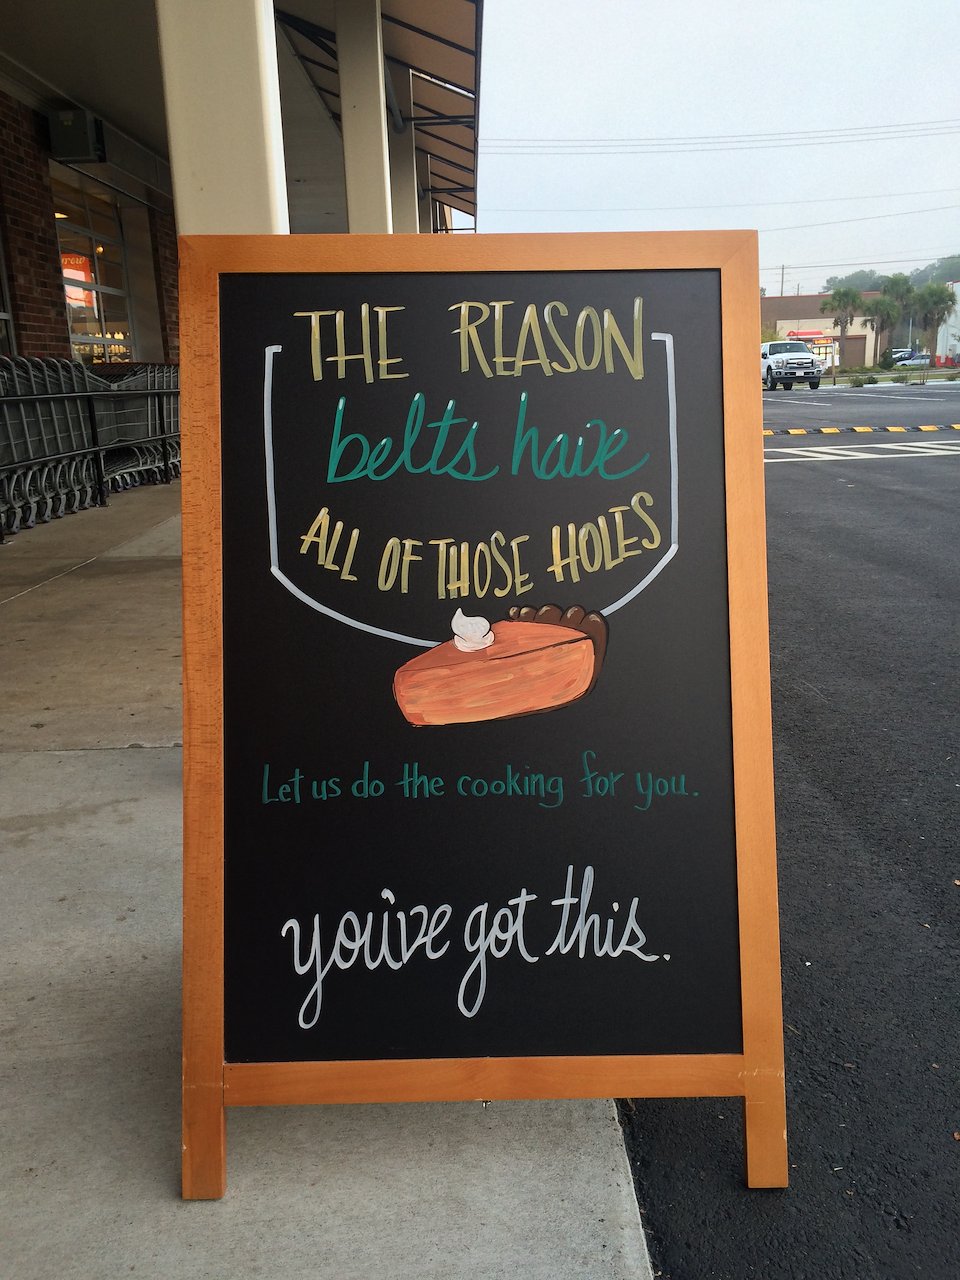 THE REASON
belts have
ALL OF THOSE HOLES
Let us do the cooking for you.
you've got this.